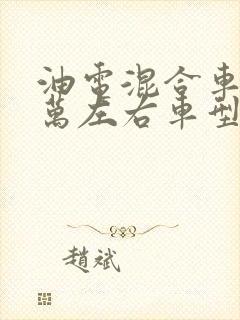 油電混合車
萬左右車型
趙斌